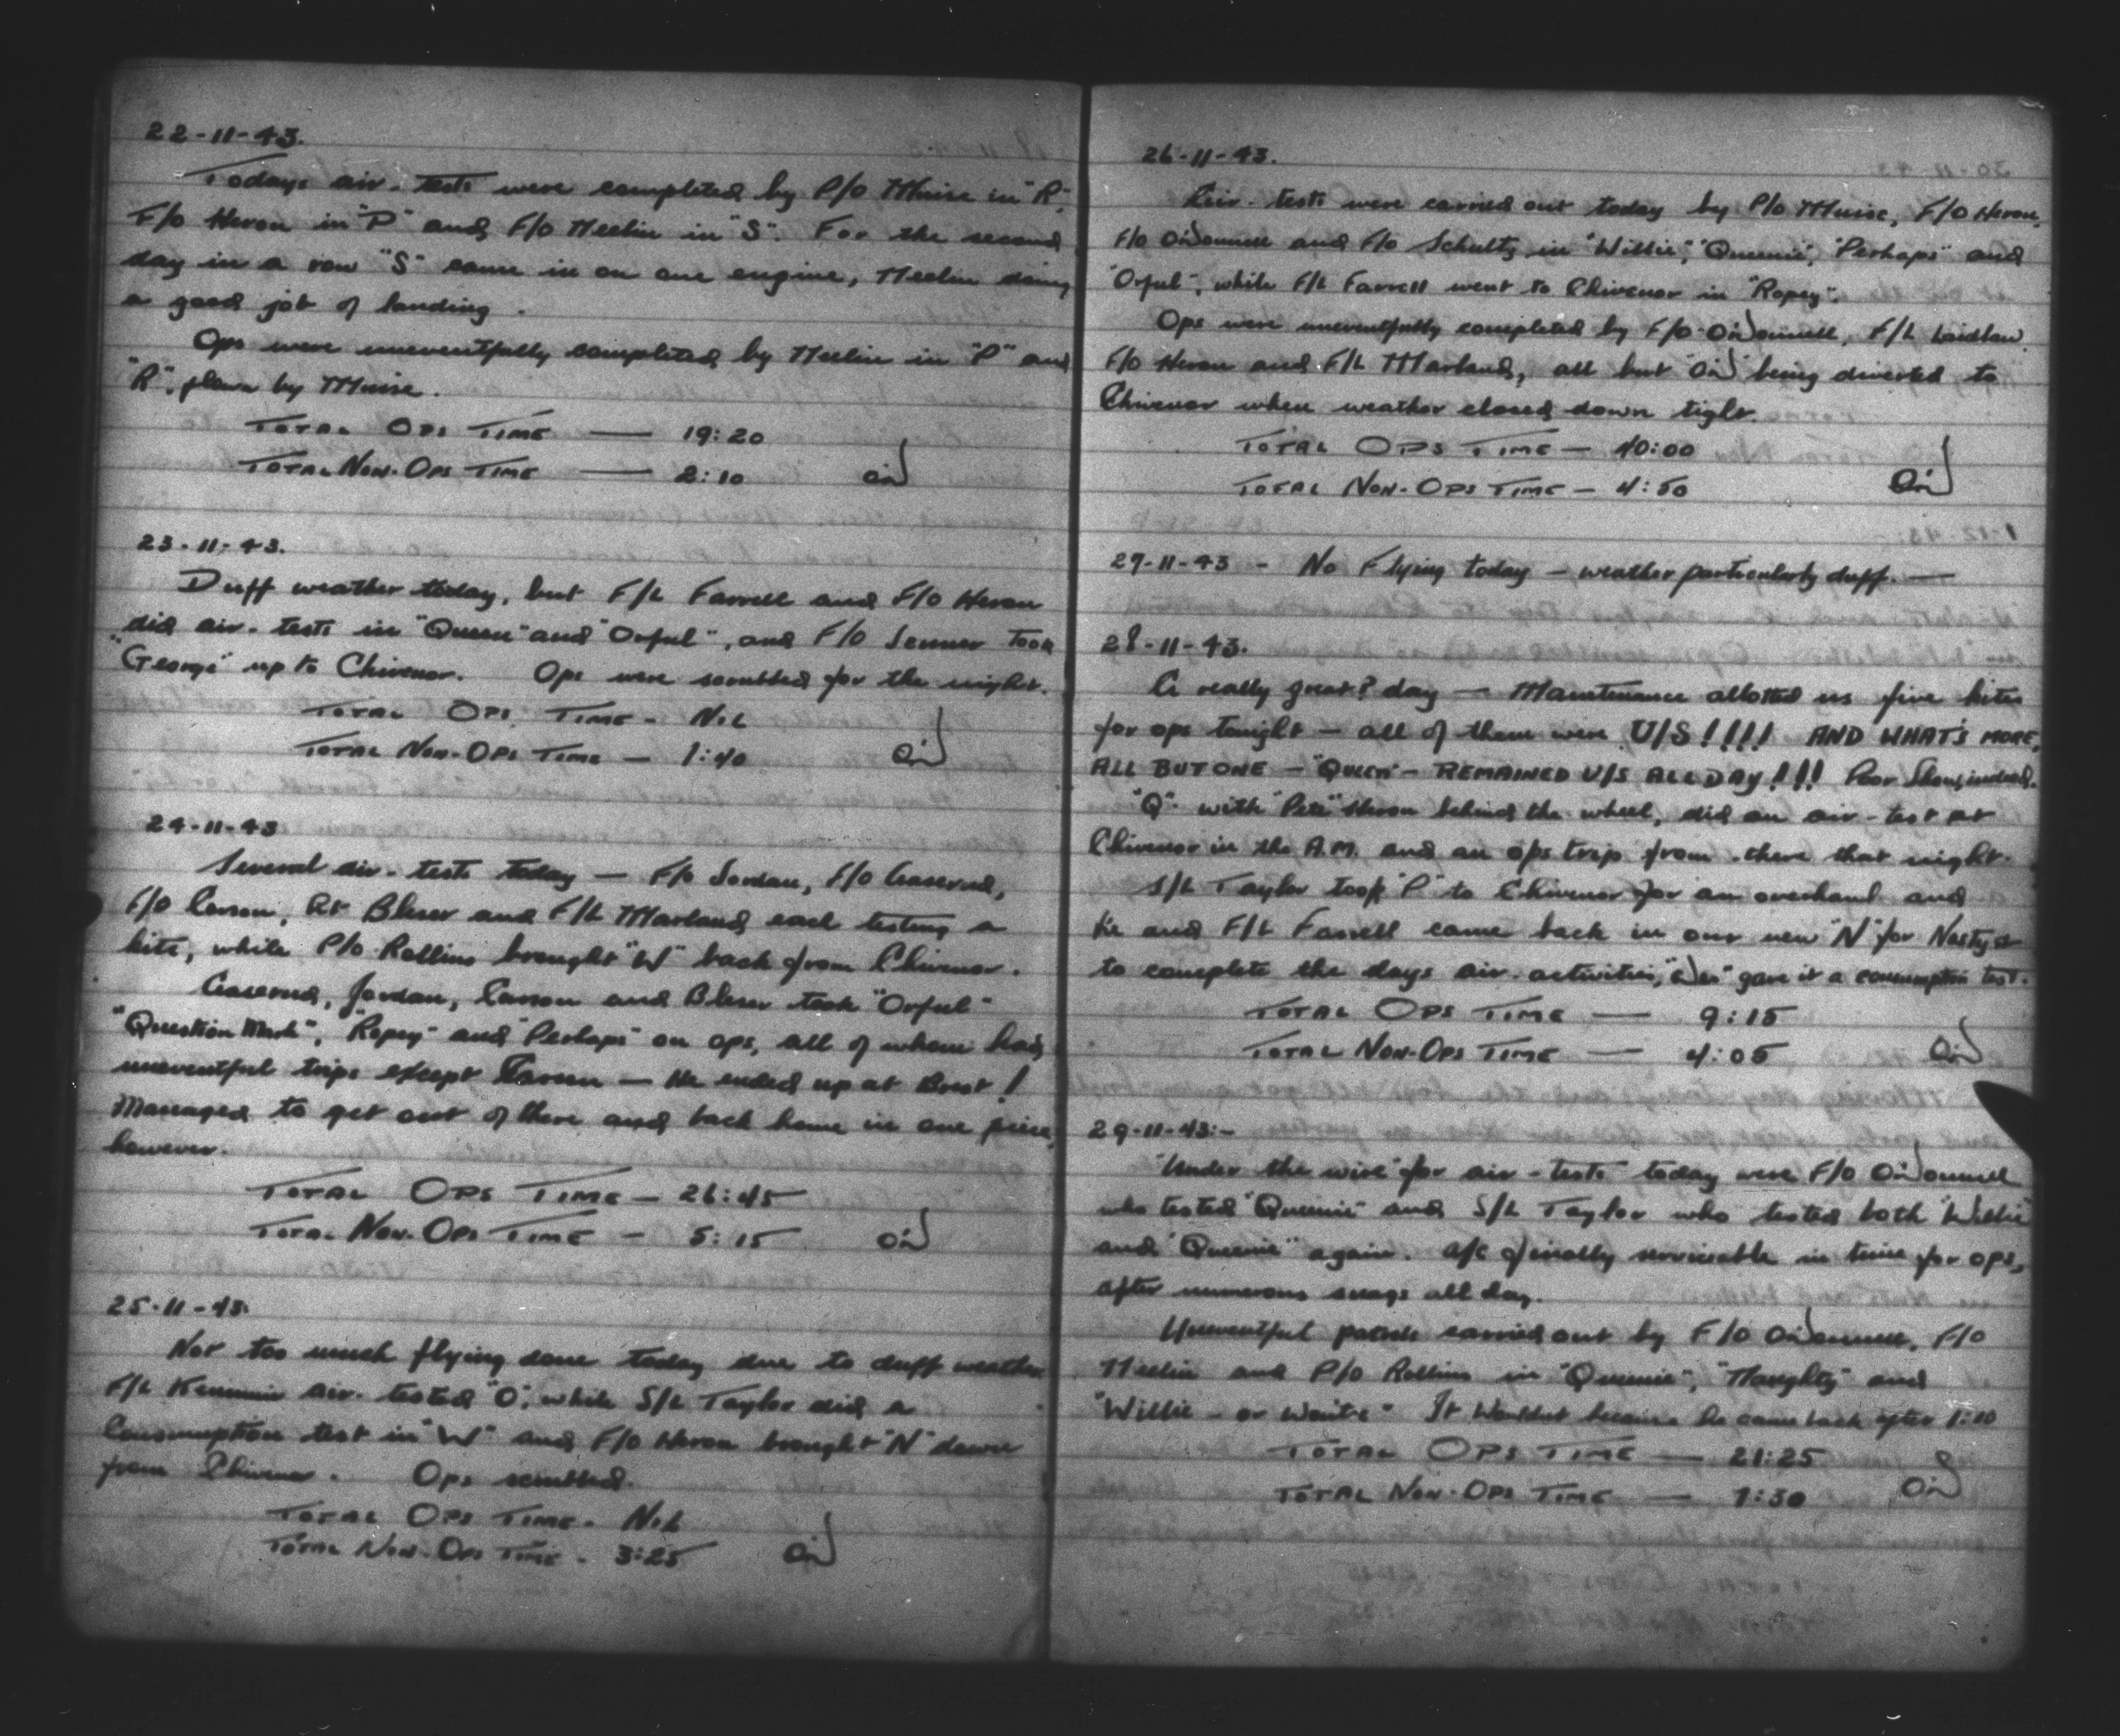 22-11-43.
Todays air-tests were completed by P/O Muise in "R",
F/O Heron in "P" and F/O Meelin in "S". For the second
day in a row "S" came in on one engine, Meelin doing
a good job of landing.
Ops were uneventfully completed by Meelin in "P" and
"R", flown by Muise.
TOTAL OPS TIME — 19:20
TOTAL NON-OPS TIME — 2:10
23-11-43.
Duff weather today, but F/L Farrell and F/O Heron
did air-tests in "Queen" and "Orful", and F/O Senner took
"George" up to Chivenor. Ops were scrubbed for the night.
TOTAL OPS TIME - NIL
TOTAL NON-OPS TIME — 1:40
24-11-43
Several air-tests today — F/O Jordan, F/O
F/O Carson, Lt Bleser and F/L Marland each testing a
kite, while P/O Rollins brought "W" back from Chivenor.
Jordan, Carson and Bleser took "Orful"
"Question Mark", "Ropey" and "Perhaps" on ops, all of whom had
uneventful trips except Carson — He ended up at Brest!
Managed to get out of there and back home in one piece,
however.
TOTAL OPS TIME — 26:45
TOTAL NON-OPS TIME — 5:15
25-11-43.
Not too much flying done today due to duff weather
F/L air-tested "O", while S/L Taylor did a
Consumption test in "W" and F/O Heron brought "N" down
from Chivenor. Ops scrubbed.
TOTAL OPS TIME - NIL
TOTAL NON-OPS TIME - 3:25
26-11-43.
Air-tests were carried out today by P/O Muise, F/O Heron,
F/O O'Donnell and F/O Schultz in "Willie", "Queenie", "Perhaps" and
"Orful", while F/L Farrell went to Chivenor in "Ropey".
Ops were uneventfully completed by F/O O'Donnell, F/L Laidlaw,
F/O Heron and F/L Marland, all but O'D being diverted to
Chivenor when weather closed down tight.
TOTAL OPS TIME — 40:00
TOTAL NON-OPS TIME — 4:50
27-11-43 - No Flying today — weather particularly duff. —
28-11-43.
A really great? day — Maintenance allotted us five kites
for ops tonight — all of them were U/S!!!! AND WHAT'S MORE,
ALL BUT ONE — "QUEEN" — REMAINED U/S ALL DAY!!! Poor Show, indeed.
"Q" with "Pete" Heron behind the wheel, did an air-test at
Chivenor in the A.M. and an ops trip from there that night.
S/L Taylor took "P" to Chivenor for an overhaul and
he and F/L Farrell came back in our new "N" for Nasty &
to complete the days air-activities, gave it a consumption test.
TOTAL OPS TIME — 9:15
TOTAL NON-OPS TIME — 4:05
29-11-43:-
"Under the wire" for air-tests today were F/O O'Donnell
who tested "Queenie" and S/L Taylor who tested both "Willie"
and "Queenie" again. A/C finally serviceable in time for ops,
after numerous snags all day.
Uneventful patrols carried out by F/O O'Donnell, F/O
Meelin and P/O Rollins in "Queenie", "Naughty" and
"Willie — or Won't e" It Wouldn't because he came back after 1:10
TOTAL OPS TIME — 21:25
TOTAL NON-OPS TIME — 1:30